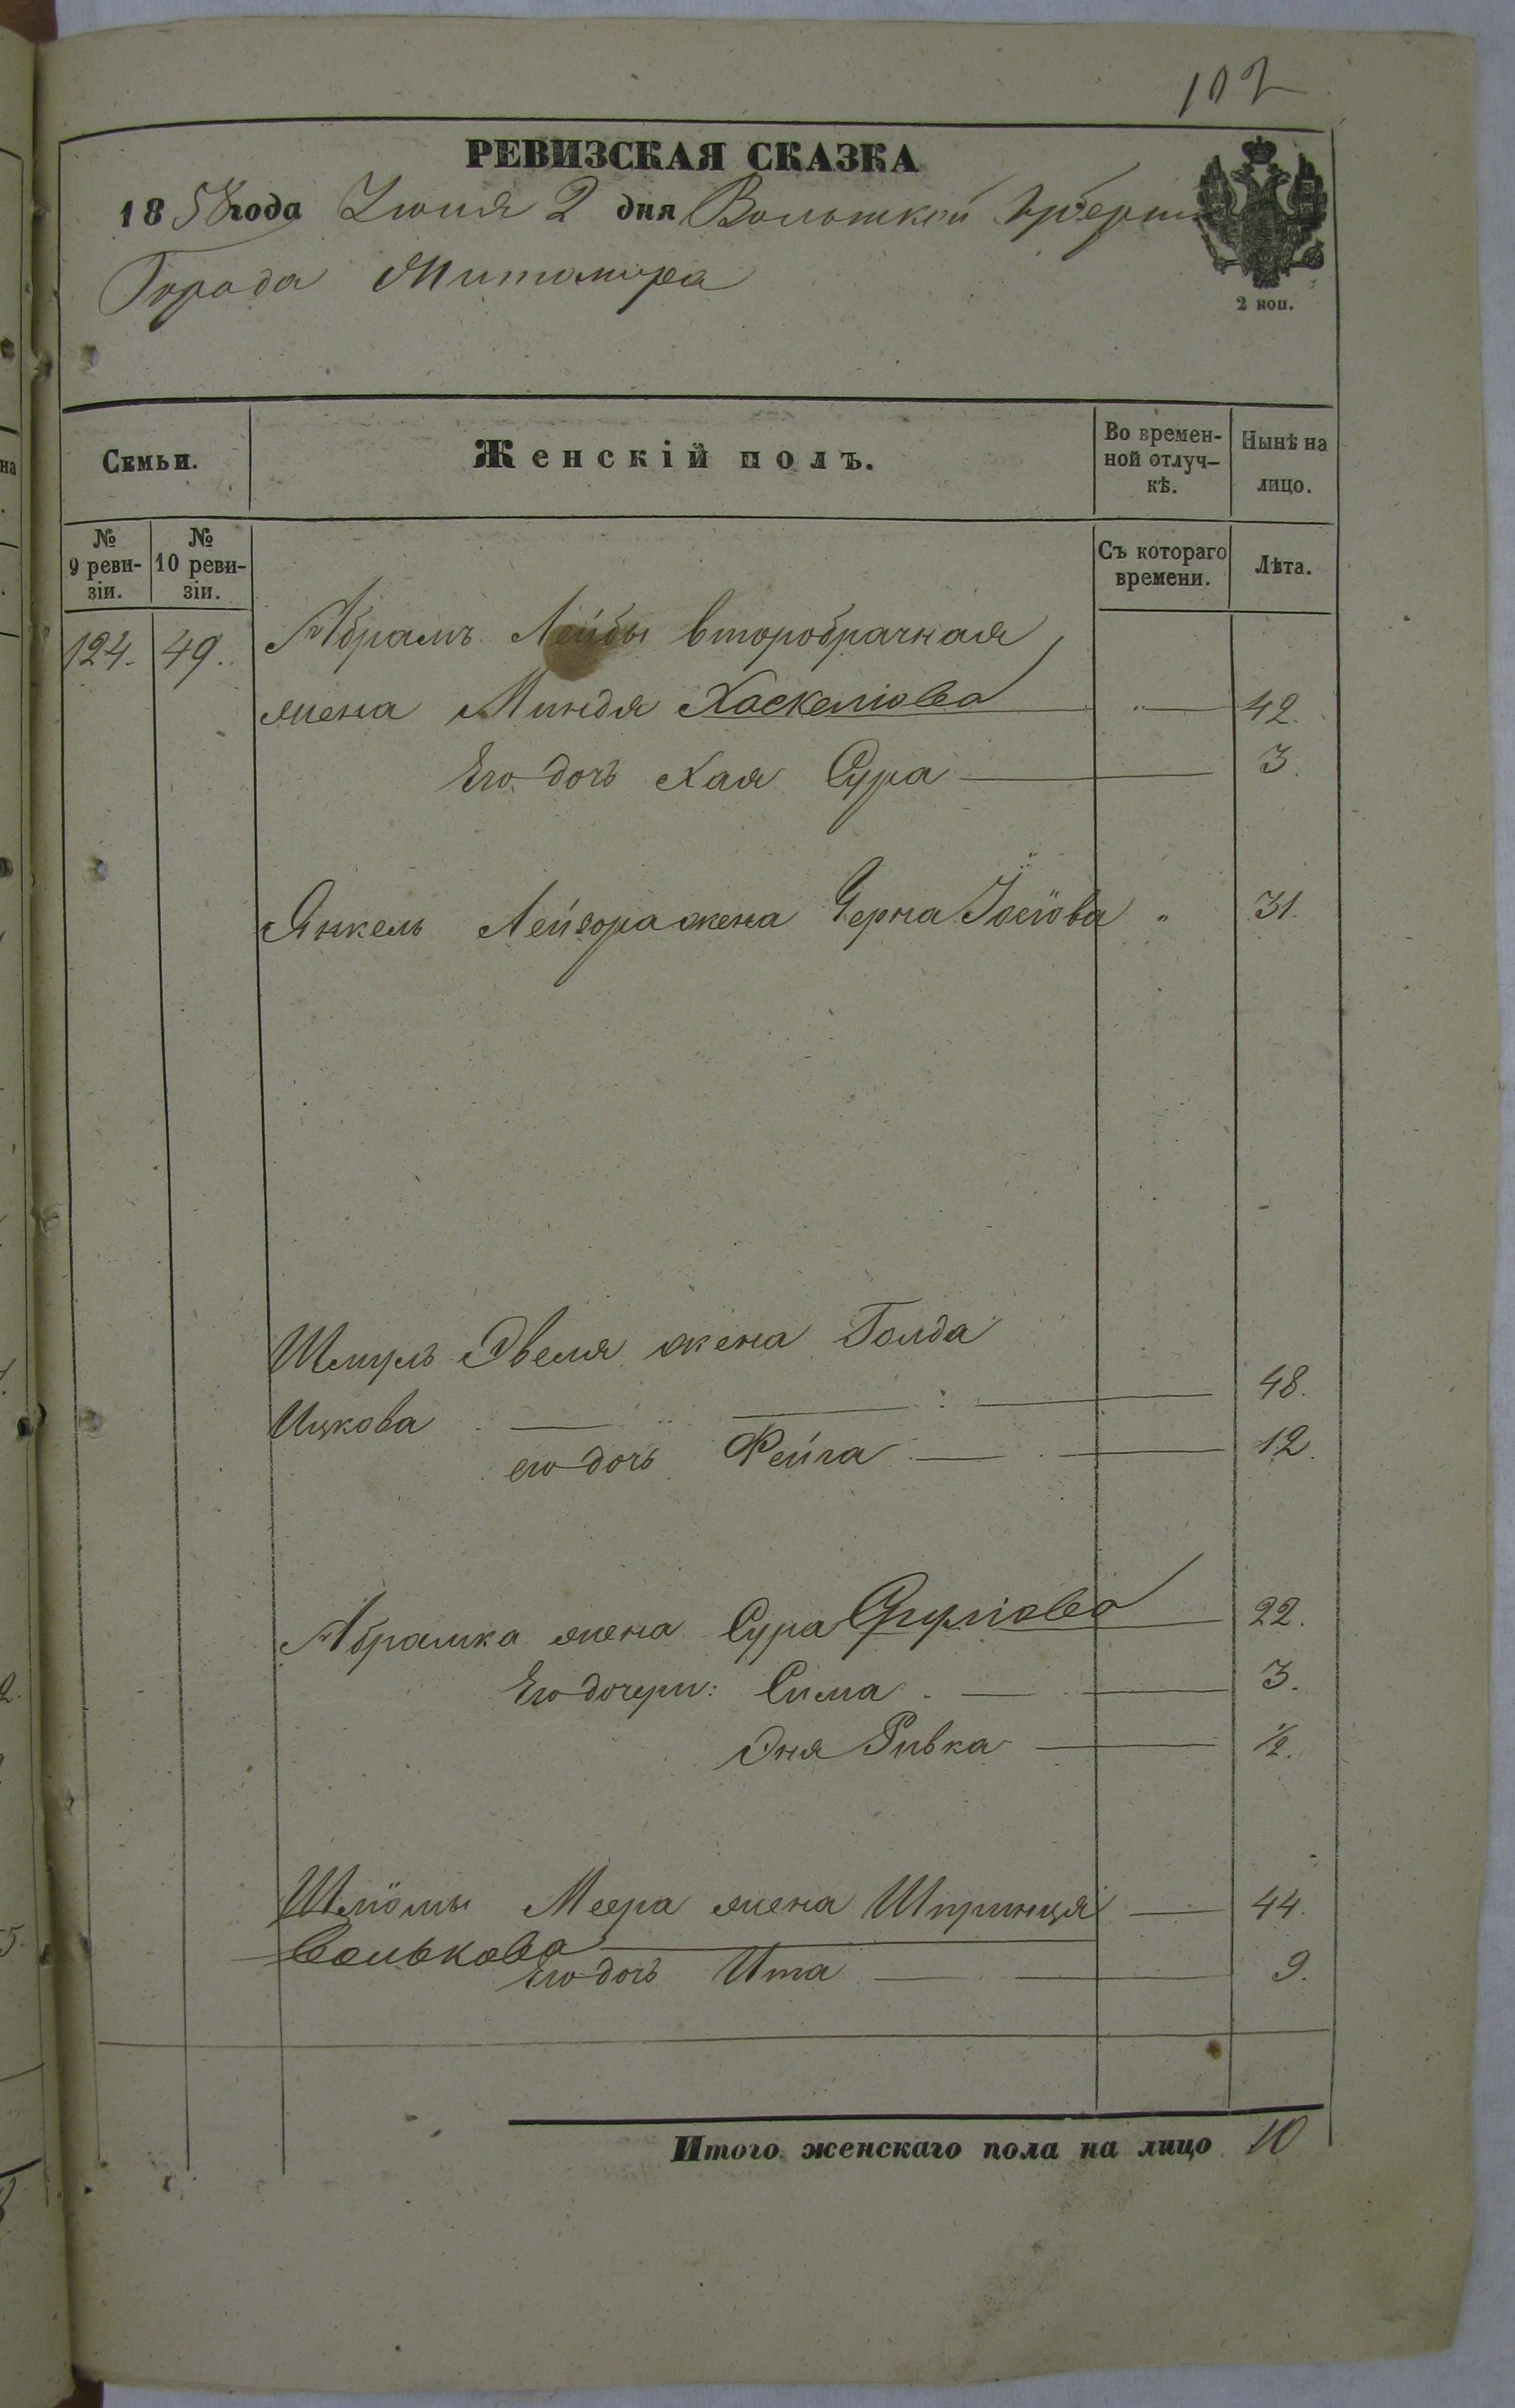 102
РЕВИЗСКАЯ СКАЗКА
1858 года Июня 2 дня Волынской Губерніи
Города Житомира
2 коп.
Семьи.
Женскій полъ.
Во времен-
ной отлуч-
кѣ.
Нынѣ на
лицо.
№
9 реви-
зіи.
№
10 реви-
зіи.
Съ котораго
времени.
Лѣта.
124. 49. Абрамъ Лейбы второбрачная
жена Миндя Хаскелiова — 42.
Его дочь Хая Сура — 3.
Янкель Лейзора жена Черна Іосіова " 31.
Шмуль Эвеля жена Голда
Ицкова — 48.
его дочь Фейга — 12.
Абрамка жена Сура 22.
Его дочери: Сима — 3.
Эня Ривка — ½.
Шліомы Меера жена Шпринця — 44.
Волькова
Его дочь Ита — 9.
Итого женскаго пола на лицо 10